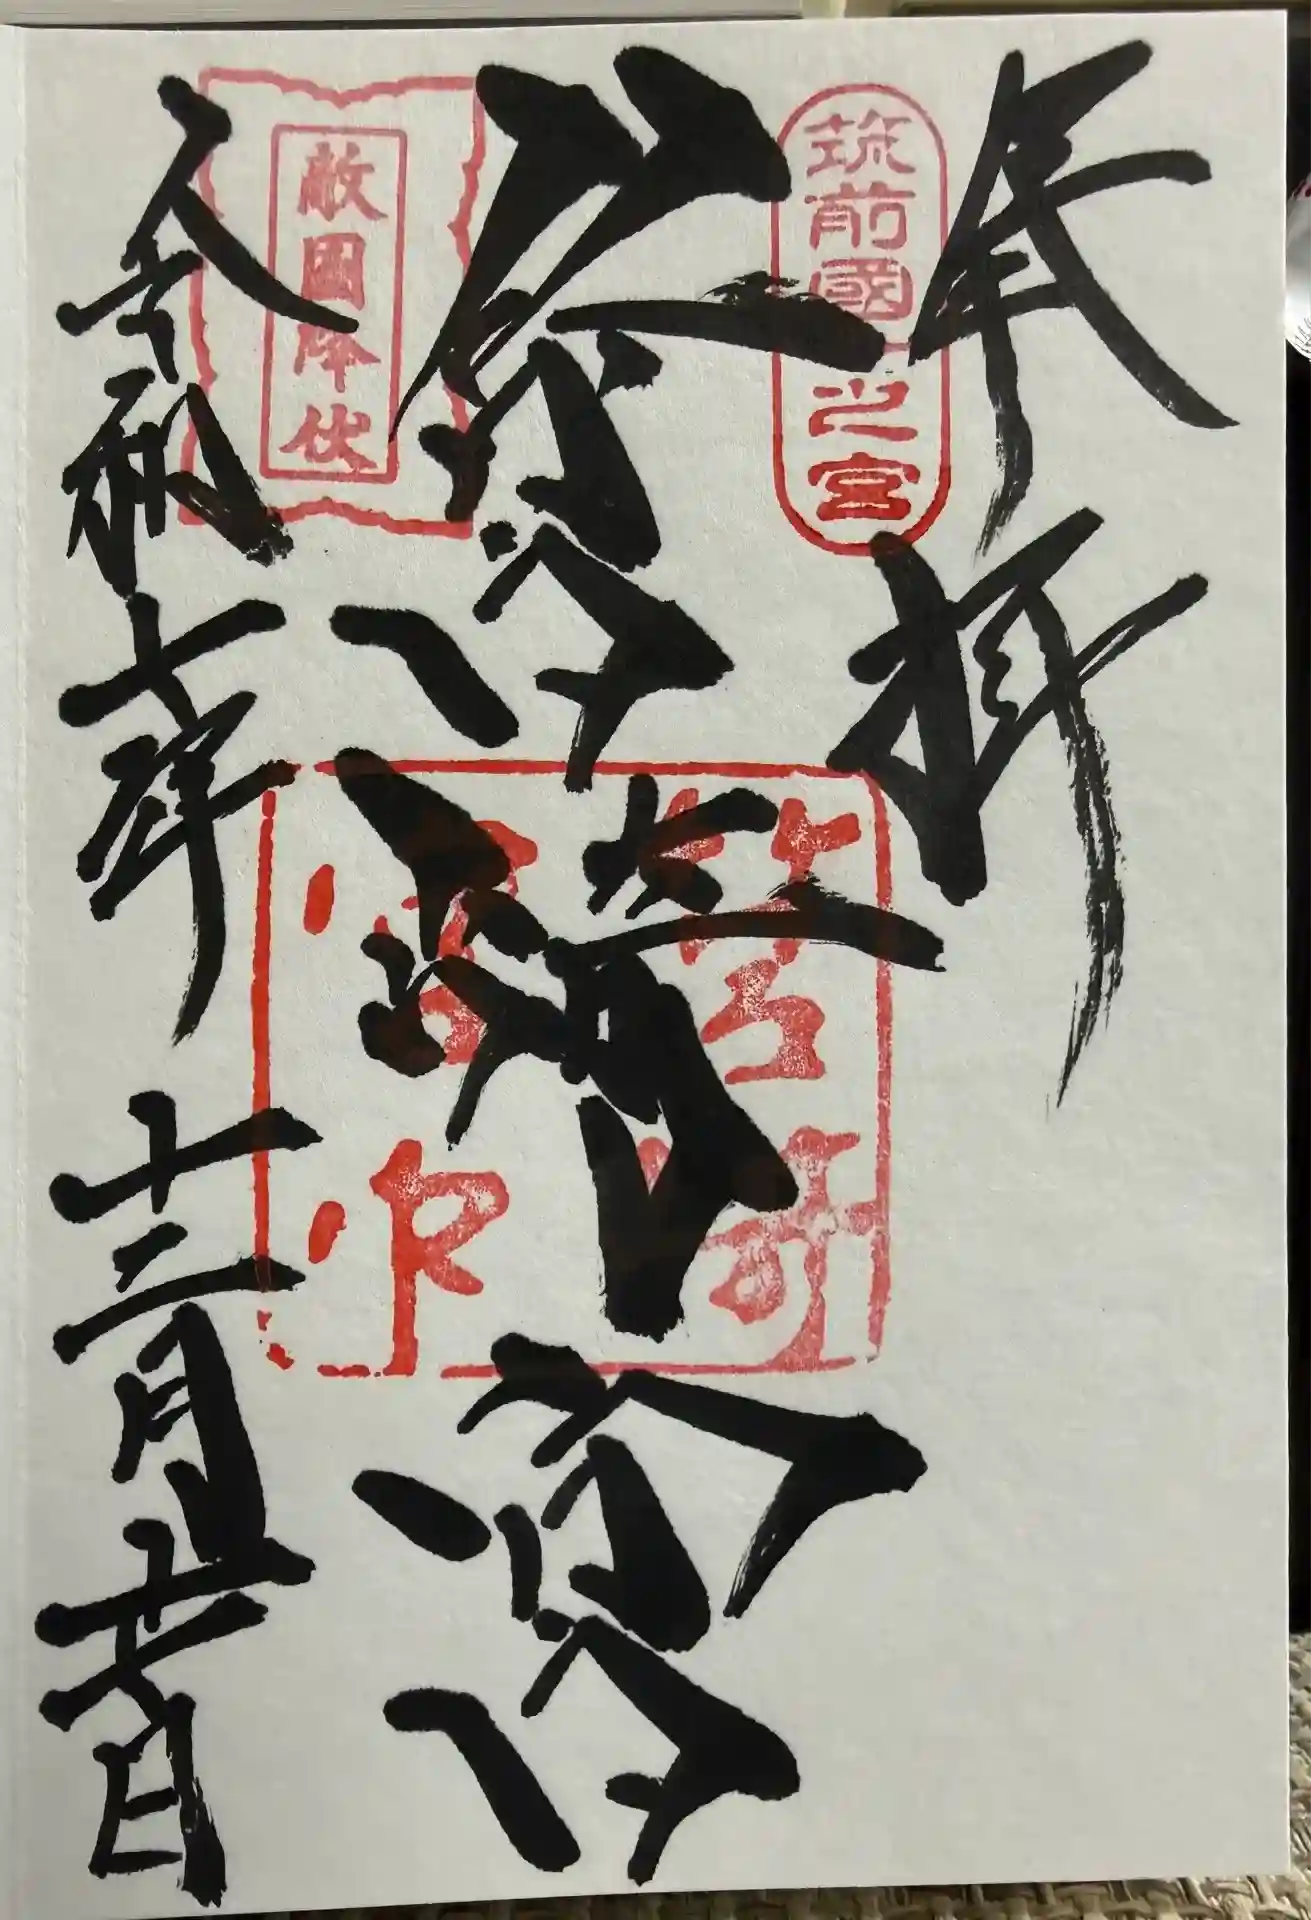 奉拝
筑前國一之宮
筥崎宮
筥崎
宮印
敵國降伏
令和七年十二月廿一日